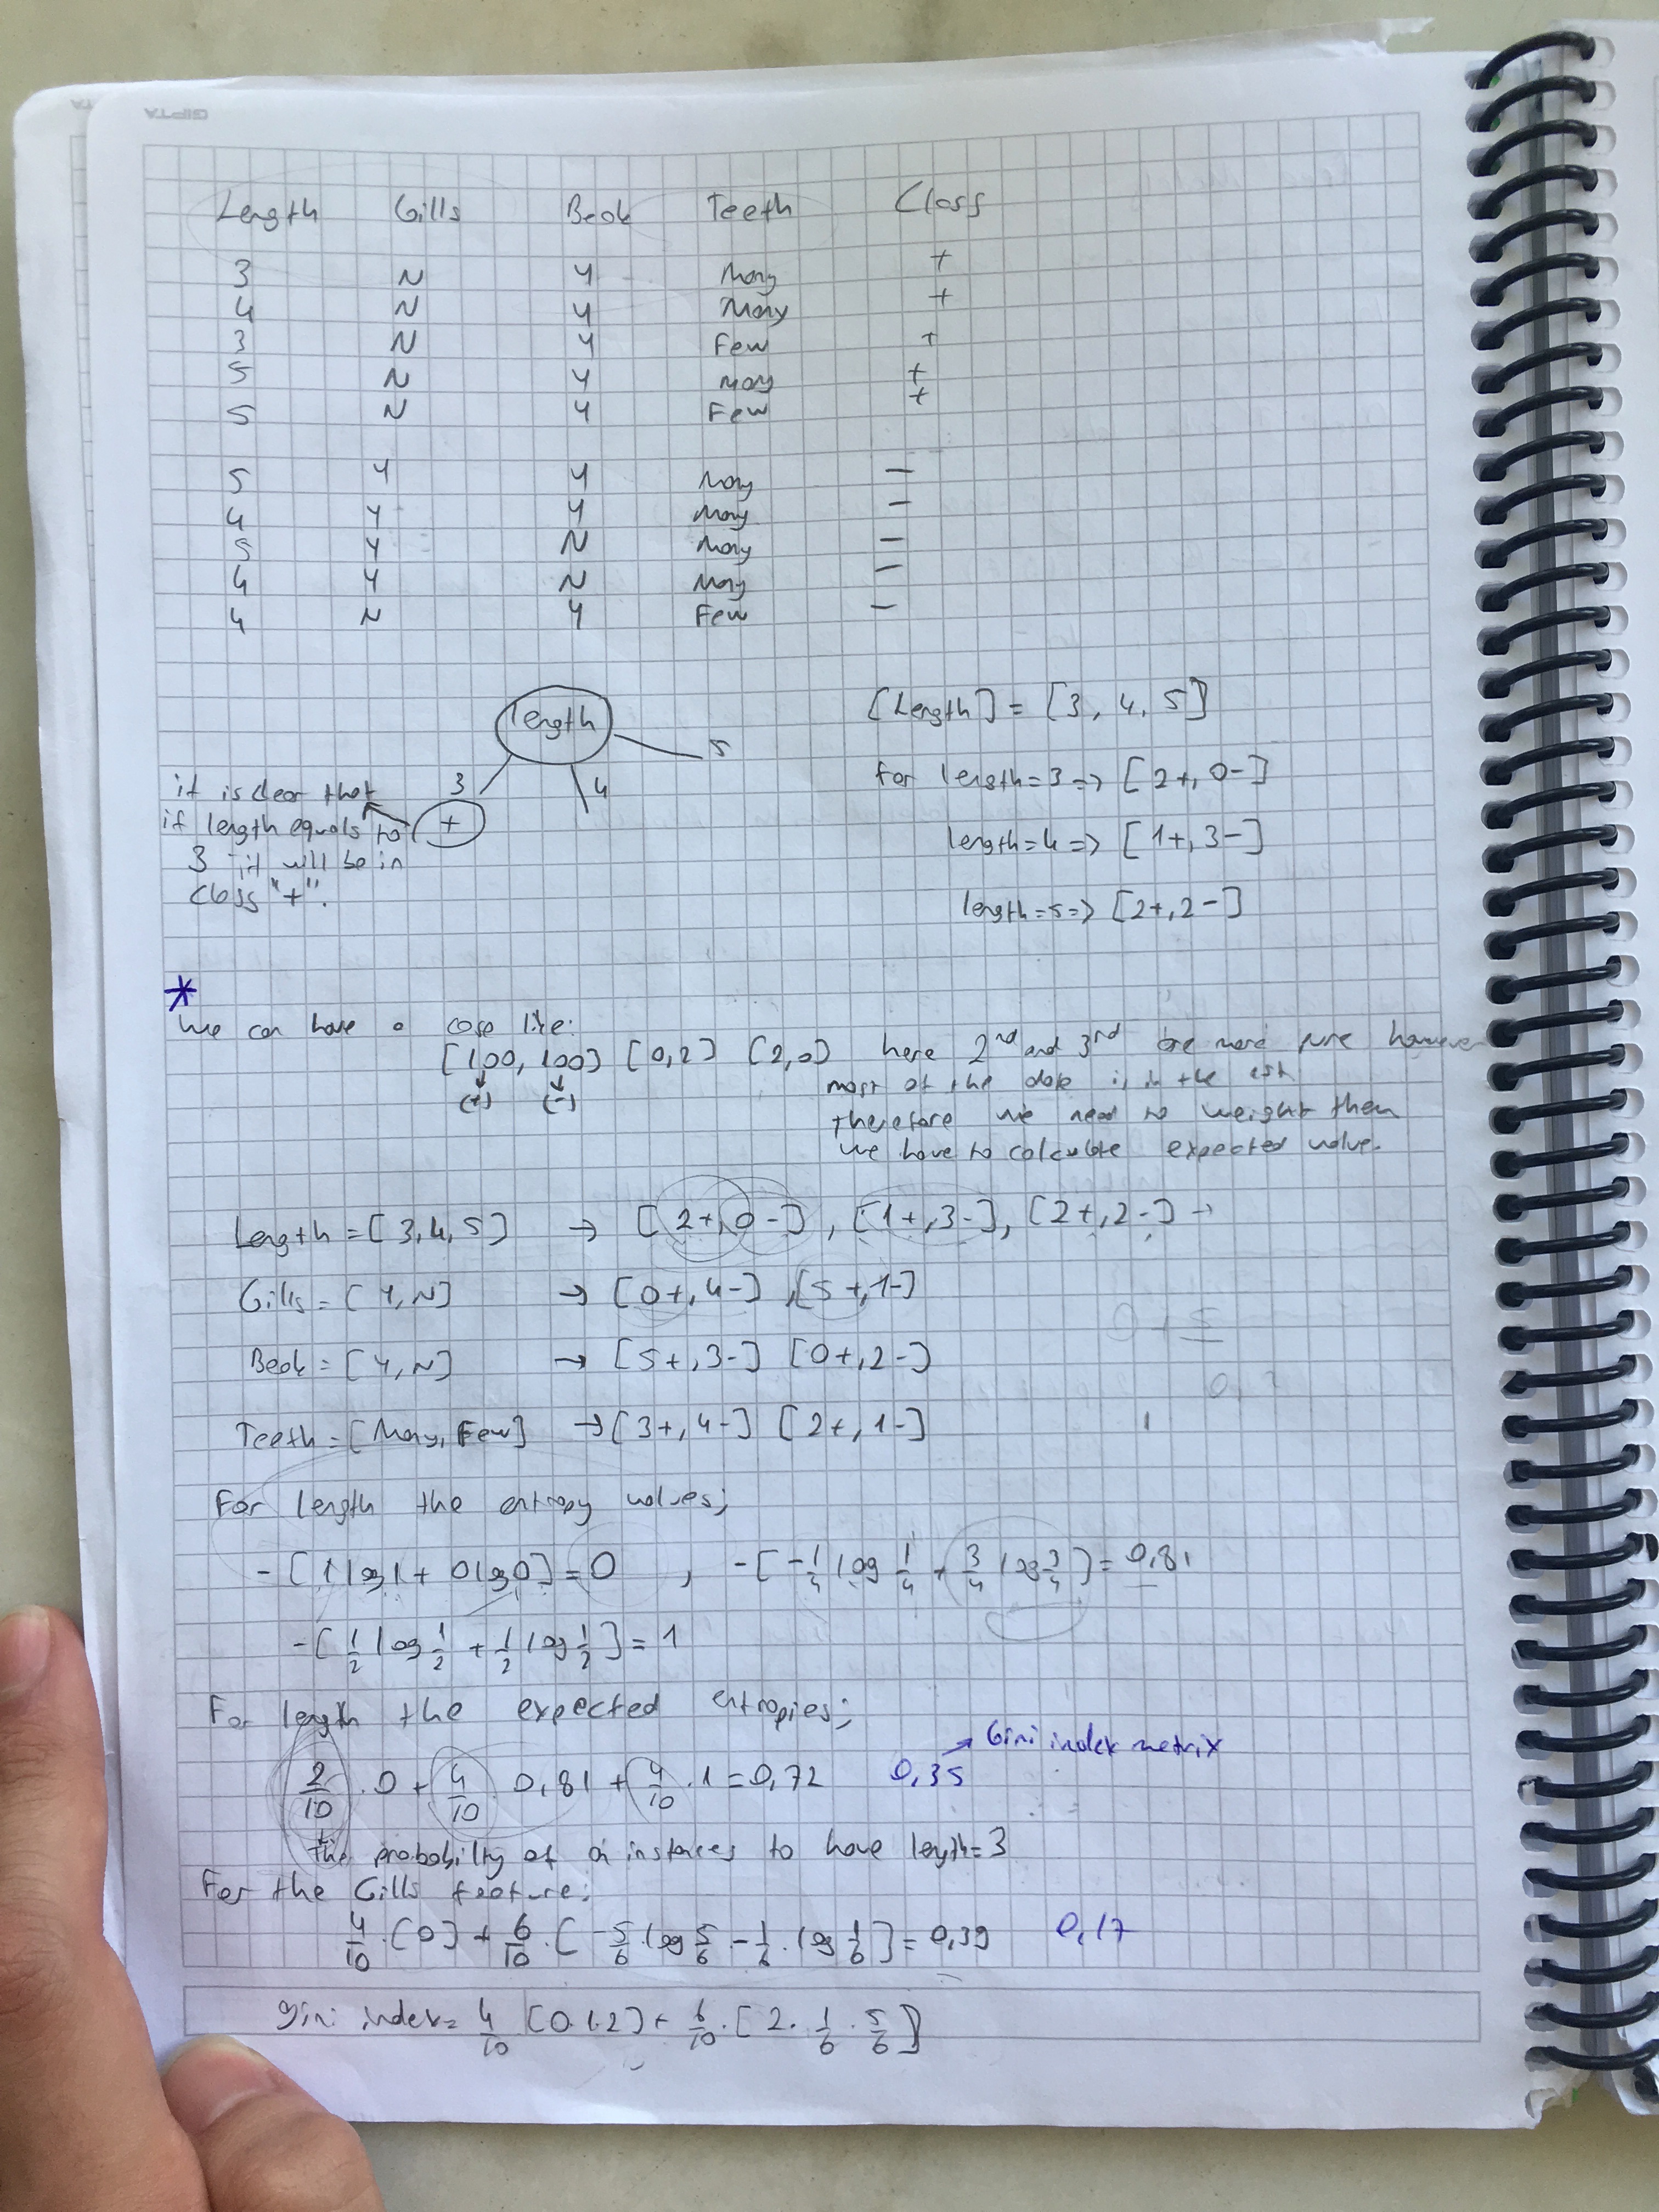 GIPTA
Length Gills Beak Teeth Class
3 N Y Many +
4 N Y Many +
3 N Y Few +
5 N Y Many +
5 N Y Few +
5 Y Y Many −
4 Y Y Many −
5 Y N Many −
4 Y N Many −
4 N Y Few −
length
3 4 5
+
it is clear that
if length equals to
3 it will be in
class "+".
[Length] = [3, 4, 5]
for length=3 => [2+, 0-]
length=4 => [1+, 3-]
length=5 => [2+, 2-]
*
We can have a case like:
[100, 100] [0,2] [2,0] here 2nd and 3rd are more pure however
(+) (-)
most of the data is in the 1st
therefore we need to weight them
we have to calculate expected value.
Length = [3,4,5] → [2+,0-], [1+,3-], [2+,2-] →
Gills = [Y,N] → [0+,4-], [5+,1-]
Beak = [Y,N] → [5+,3-] [0+,2-]
Teeth = [Many, Few] → [3+,4-] [2+,1-]
For length the entropy values;
-[1 log1 + 0log0] = 0 , -[-1/4 log 1/4 + 3/4 log 3/4] = 0,81
-[1/2 log 1/2 + 1/2 log 1/2] = 1
For length the expected entropies;
2/10 . 0 + 4/10 . 0,81 + 4/10 . 1 = 0,72 0,35 → Gini index metrix
the probability of a instances to have length=3
For the Gills feature;
4/10 . [0] + 6/10 . [-5/6 . log 5/6 - 1/6 . log 1/6] = 0,39 0,17
gini index = 4/10 [0.1.2] + 6/10 . [2 . 1/6 . 5/6]